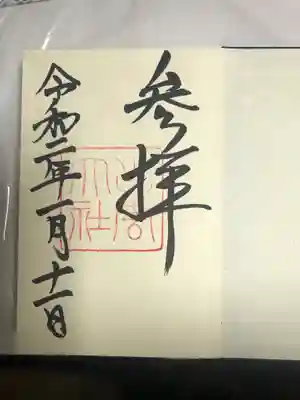 参拝
令和二年一月十一日